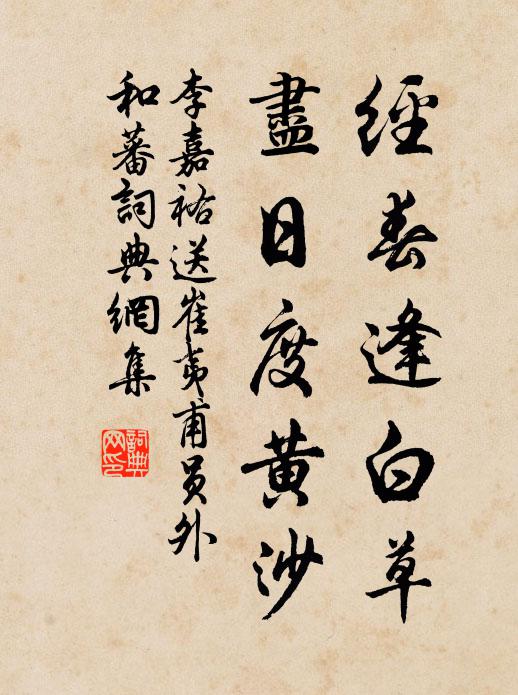 經春逢白草
盡日度黃沙
李嘉祐送崔夷甫員外
和蕃詞典網集
詞典
网印